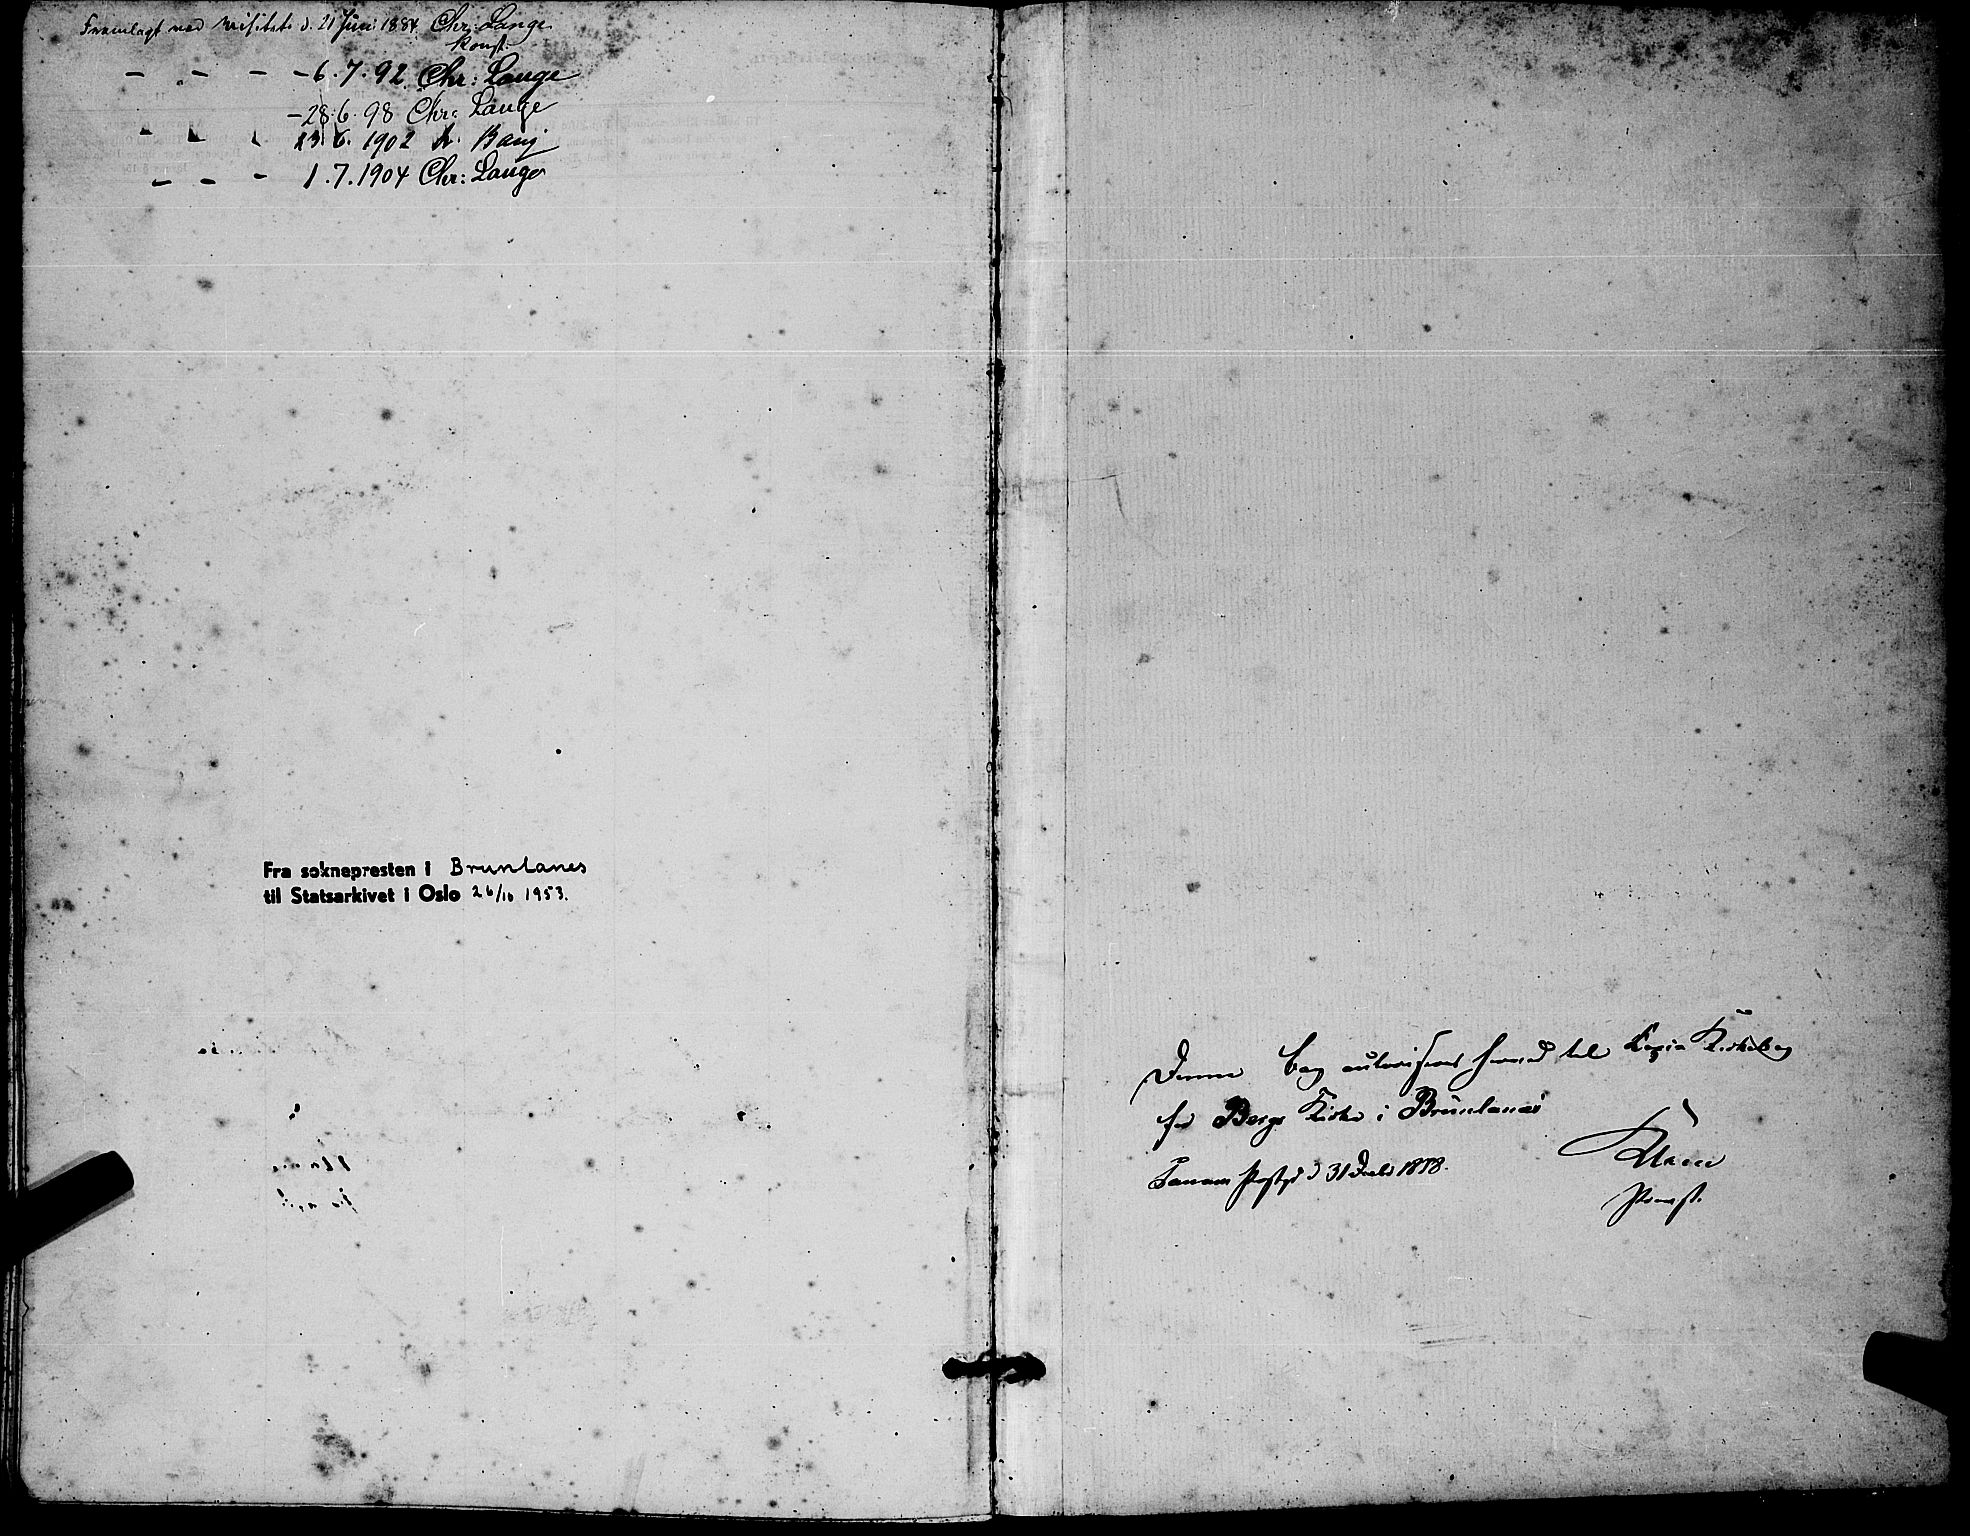 Fremlagt ved Visitats d. 21 Juni 1884 Chr: Lange
konst.
— — — — 6.7.92 Chr: Lange
— 28.6.98 Chr: Lange
23.6.1902 A. Bang
— — — 1.7.1904 Chr: Lange
Fra soknepresten i Brunlanes
til Statsarkivet i Oslo 26/10 1953.
Denne Bog autoriseres herved til Kopie Kirkebog
for Bergs Kirke i Brunlanæs
Tanum Præstgd d 31 1878.
Provst.